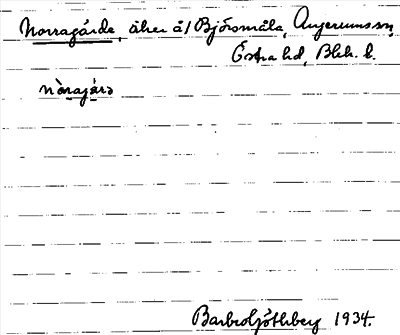 Norragärde, åker å/ Björsmåla, Augerums sn,
Östra hd, Blek. l.
nòragárə
Barbro Göthberg 1934.